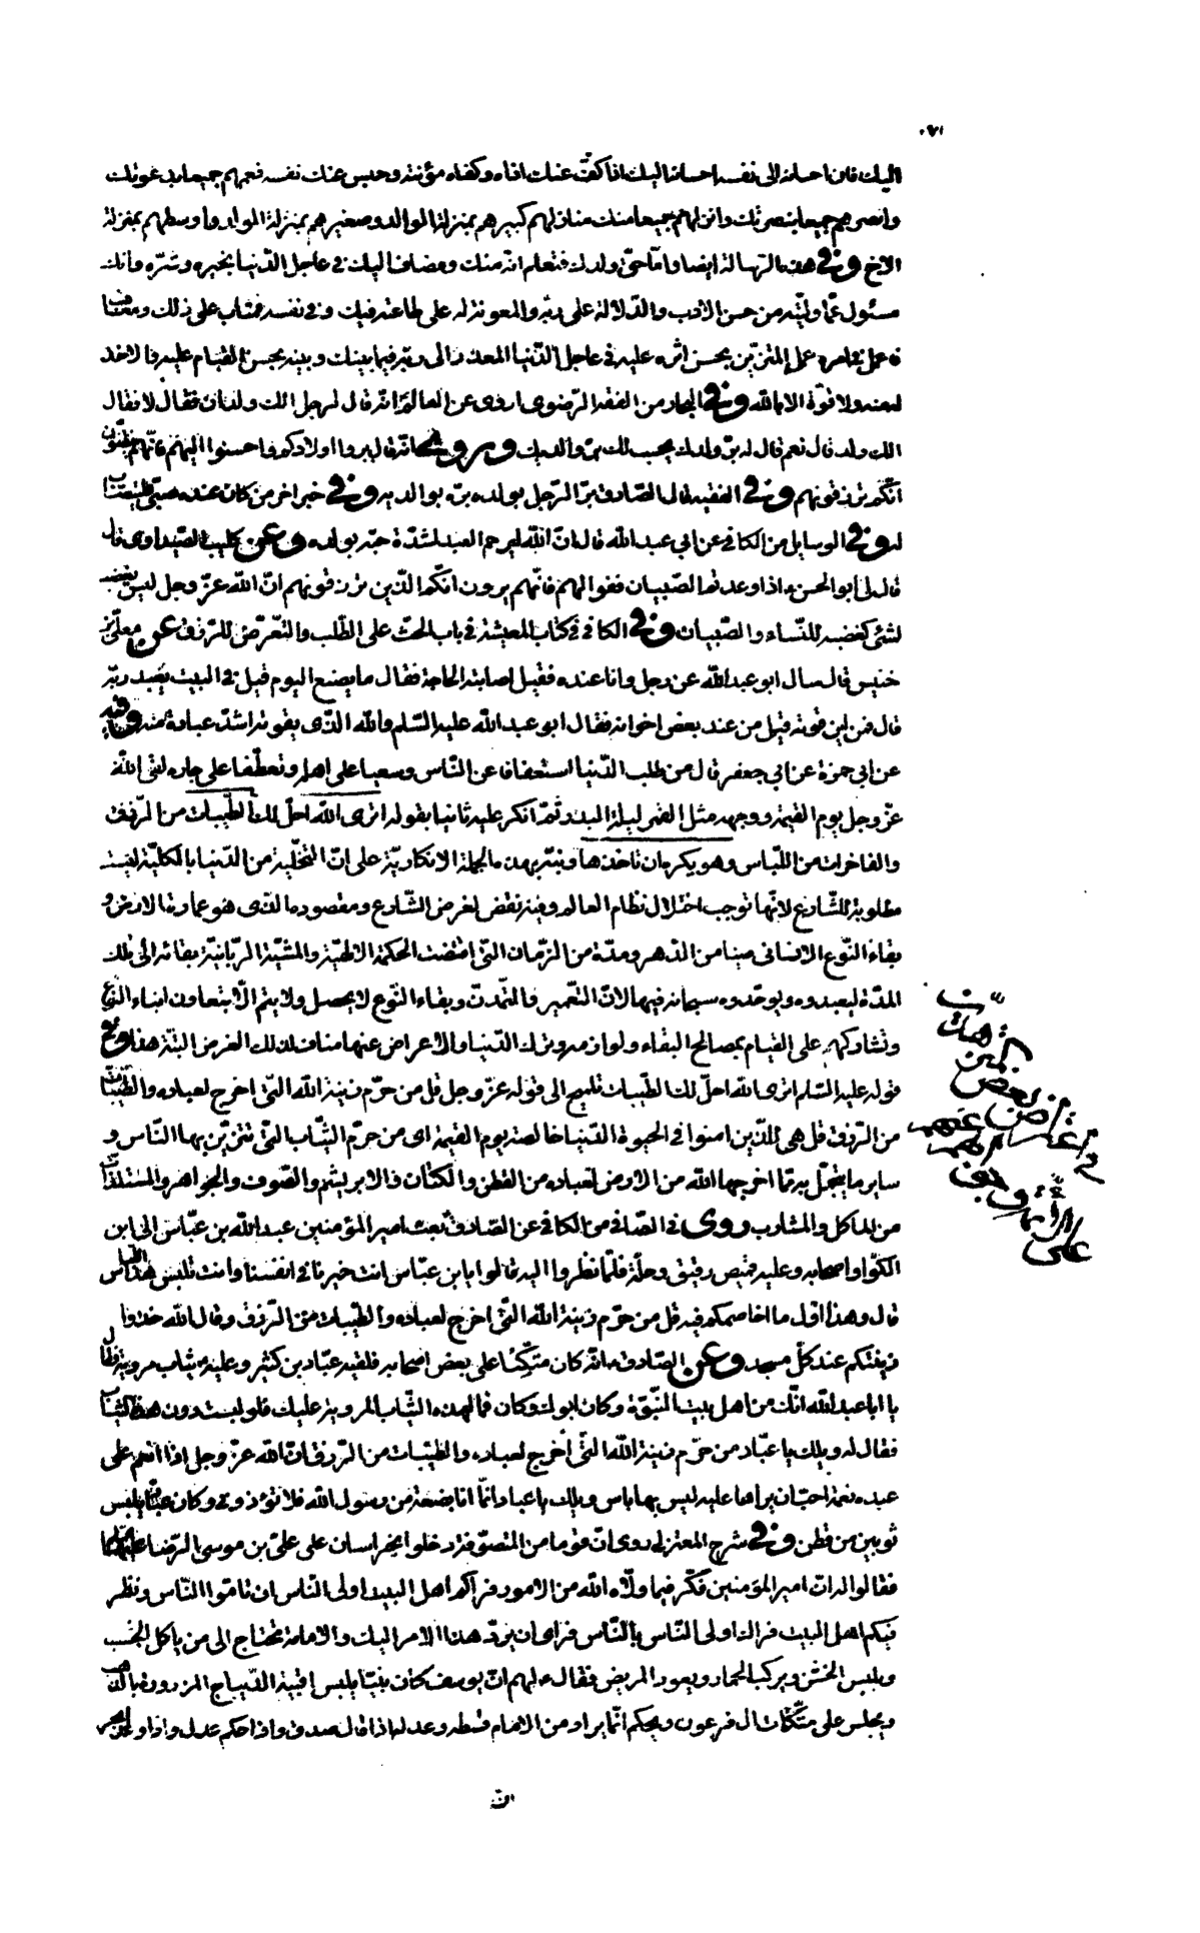 اليك فان احسانه الى نفسه احسانه اليك اذا كفّ عنك اذاه وكفاه مؤنته وحبس عنك نفسه فعمهم جميعا بدعوتك
وانصرهم جميعا بنصرتك وانزلهم جميعا منك منازلهم كبيرهم بمنزلة الوالد وصغيرهم بمنزلة الولد واوسطهم بمنزلة
الاخ وفي هذه الرسالة ايضا وامّا حقّ ولدك فتعلم انّه منك ومضاف اليك في عاجل الدّنيا بخيره وشرّه وانك
مسئول عمّا ولّيته من حسن الادب والدّلالة على ربّه والمعونة له على طاعته فيك وفي نفسه فمثاب على ذلك ومعاقب
فاعمل في امره عمل المتزيّن بحسن اثره عليه في عاجل الدّنيا المعذر الى ربّه فيما بينك وبينه بحسن القيام عليه والاخذ
له منه ولا قوّة الا بالله وفي البحار من الفقه الرّضوي اروى عن العالم انّه قال لرجل الك والدان فقال لا فقال
الك ولد قال نعم قال له برّ ولدك يحسب لك برّ والديك وروى انّه قال برّوا اولادكم واحسنوا اليهم فانّهم يظنّون
انّكم ترزقونهم وفي الفقيه قال الصّادق برّ الرّجل بولده برّه بوالديه وفي خبر اخر من كان عنده صبيّ فليتصاب
له وفي الوسايل من الكافي عن ابي عبد الله قال انّ الله ليرحم العبد لشدّة حبّه لولده وعن كليب الصّيداوي قال
قال لي ابو الحسن اذا وعدتم الصّبيان ففوا لهم فانّهم يرون انّكم الّذين ترزقونهم انّ الله عزّ وجل ليس يغضب
لشئ كغضبه للنّساء والصّبيان وفي الكافي في كتاب المعيشة في باب الحثّ على الطّلب والتّعرّض للرّزق عن معلّى بن
خنيس قال سال ابو عبد الله عن رجل وانا عنده فقيل اصابته الحاجة فقال ما يصنع اليوم قيل في البيت يعبد ربّه
قال فمن اين قوته قيل من عند بعض اخوانه فقال ابو عبد الله عليه السّلم والله الّذي يقوته اشدّ عبادة منه وفيه
عن ابي حمزة عن ابي جعفر قال من طلب الدّنيا استعفافا عن النّاس وسعيا على اهله وتعطّفا على جاره لقى الله
عزّ وجل يوم القيمة ووجهه مثل القمر ليلة البدر ثمّ انكر عليه ثانيا بقوله اترى الله احلّ لك الطّيبات من الرّزق
والفاخرات من اللّباس وهو يكره ان تاخذها ونبّه بهذه الجملة الانكاريّة على انّ التخلّية من الدّنيا بالكليّة ليست
مطلوبة للشّارع لانّها توجب اختلال نظام العالم وفيه نقض لغرض الشّارع ومقصوده الذي هو عمارة الارض و
بقاء النّوع الانسانى حينا من الدّهر ومدّة من الزّمان الّتي اقتضت الحكمة الالهيّة والمشيّة الرّبانيّة بقائه الى تلك
المدّة ليعبدوه ويوحّدوه سبحانه فيها لانّ التّعمير والتمدّن وبقاء النّوع لا يحصل ولا يتمّ الّا بتعاون ابناء النّوع
وتشاركهم على القيام بمصالح البقاء ولوازمه وترك الدّنيا والاعراض عنها مناف لذلك الغرض البتّة هذا وفي
قوله عليه السّلم اترى الله احلّ لك الطّيبات تلميح الى قوله عزّ وجل قل من حرّم زينة الله الّتي اخرج لعباده والطّيبات
من الرّزق قل هي للّذين امنوا في الحيوة الدّنيا خالصة يوم القيمة اى من حرّم الثّياب الّتي تتزيّن بها النّاس و
ساير ما يتجمّل به ممّا اخرجها الله من الارض لعباده من القطن والكتّان والابريشم والصّوف والجواهر والمستلذّات
من المآكل والمشارب روى في الصّافي من الكافي عن الصّادق بعث امير المؤمنين عبد الله بن عبّاس الى ابن
الكوّا واصحابه وعليه قميص رقيق وحلّة فلمّا نظروا اليه قالوا يا بن عبّاس انت خيرنا في انفسنا وانت تلبس هذا اللّباس
قال وهذا اوّل ما اخاصمكم فيه قل من حرّم زينة الله الّتي اخرج لعباده والطّيبات من الرّزق وقال الله خذوا
زينتكم عند كلّ مسجد وعن الصّادق انّه كان متّكئا على بعض اصحابه فلقيه عبّاد بن كثير وعليه ثياب مروية فقال
يا ابا عبد الله انّك من اهل بيت النّبوّة وكان ابوك وكان فما لهذه الثّياب المروية عليك فلو لبست دون هذه الثياب
فقال له ويلك يا عبّاد من حرّم زينة الله الّتي اخرج لعباده والطّيبات من الرّزق انّ الله عزّ وجل اذا انعم على
عبده نعمة احبّ ان يراها عليه ليس بها باس ويلك يا عباد انّما انا بضعة من رسول الله فلا تؤذوني وكان عبّاد يلبس
ثوبين من قطن وفي شرح المعتزلي روى انّ قوما من المتصوّفة دخلوا بخراسان على علىّ بن موسى الرّضا عليهما
فقالوا له انّ امير المؤمنين فكّر فيما ولّاه الله من الامور فرآكم اهل البيت اولى النّاس ان تامّوا النّاس ونظر
فيكم اهل البيت فراك اولى النّاس بالنّاس فراى ان يردّ هذا الامر اليك والامامة تحتاج الى من ياكل الجشب
ويلبس الخشن ويركب الحمار ويعود المريض فقال لهم انّ يوسف كان نبيّا يلبس اقبية الدّيباج المزرورة بالذّهب
ويجلس على متّكآت ال فرعون ويحكم انّما يراد من الامام قسطه وعدله اذا قال صدق واذا حكم عدل واذا وعد انجز
انّ